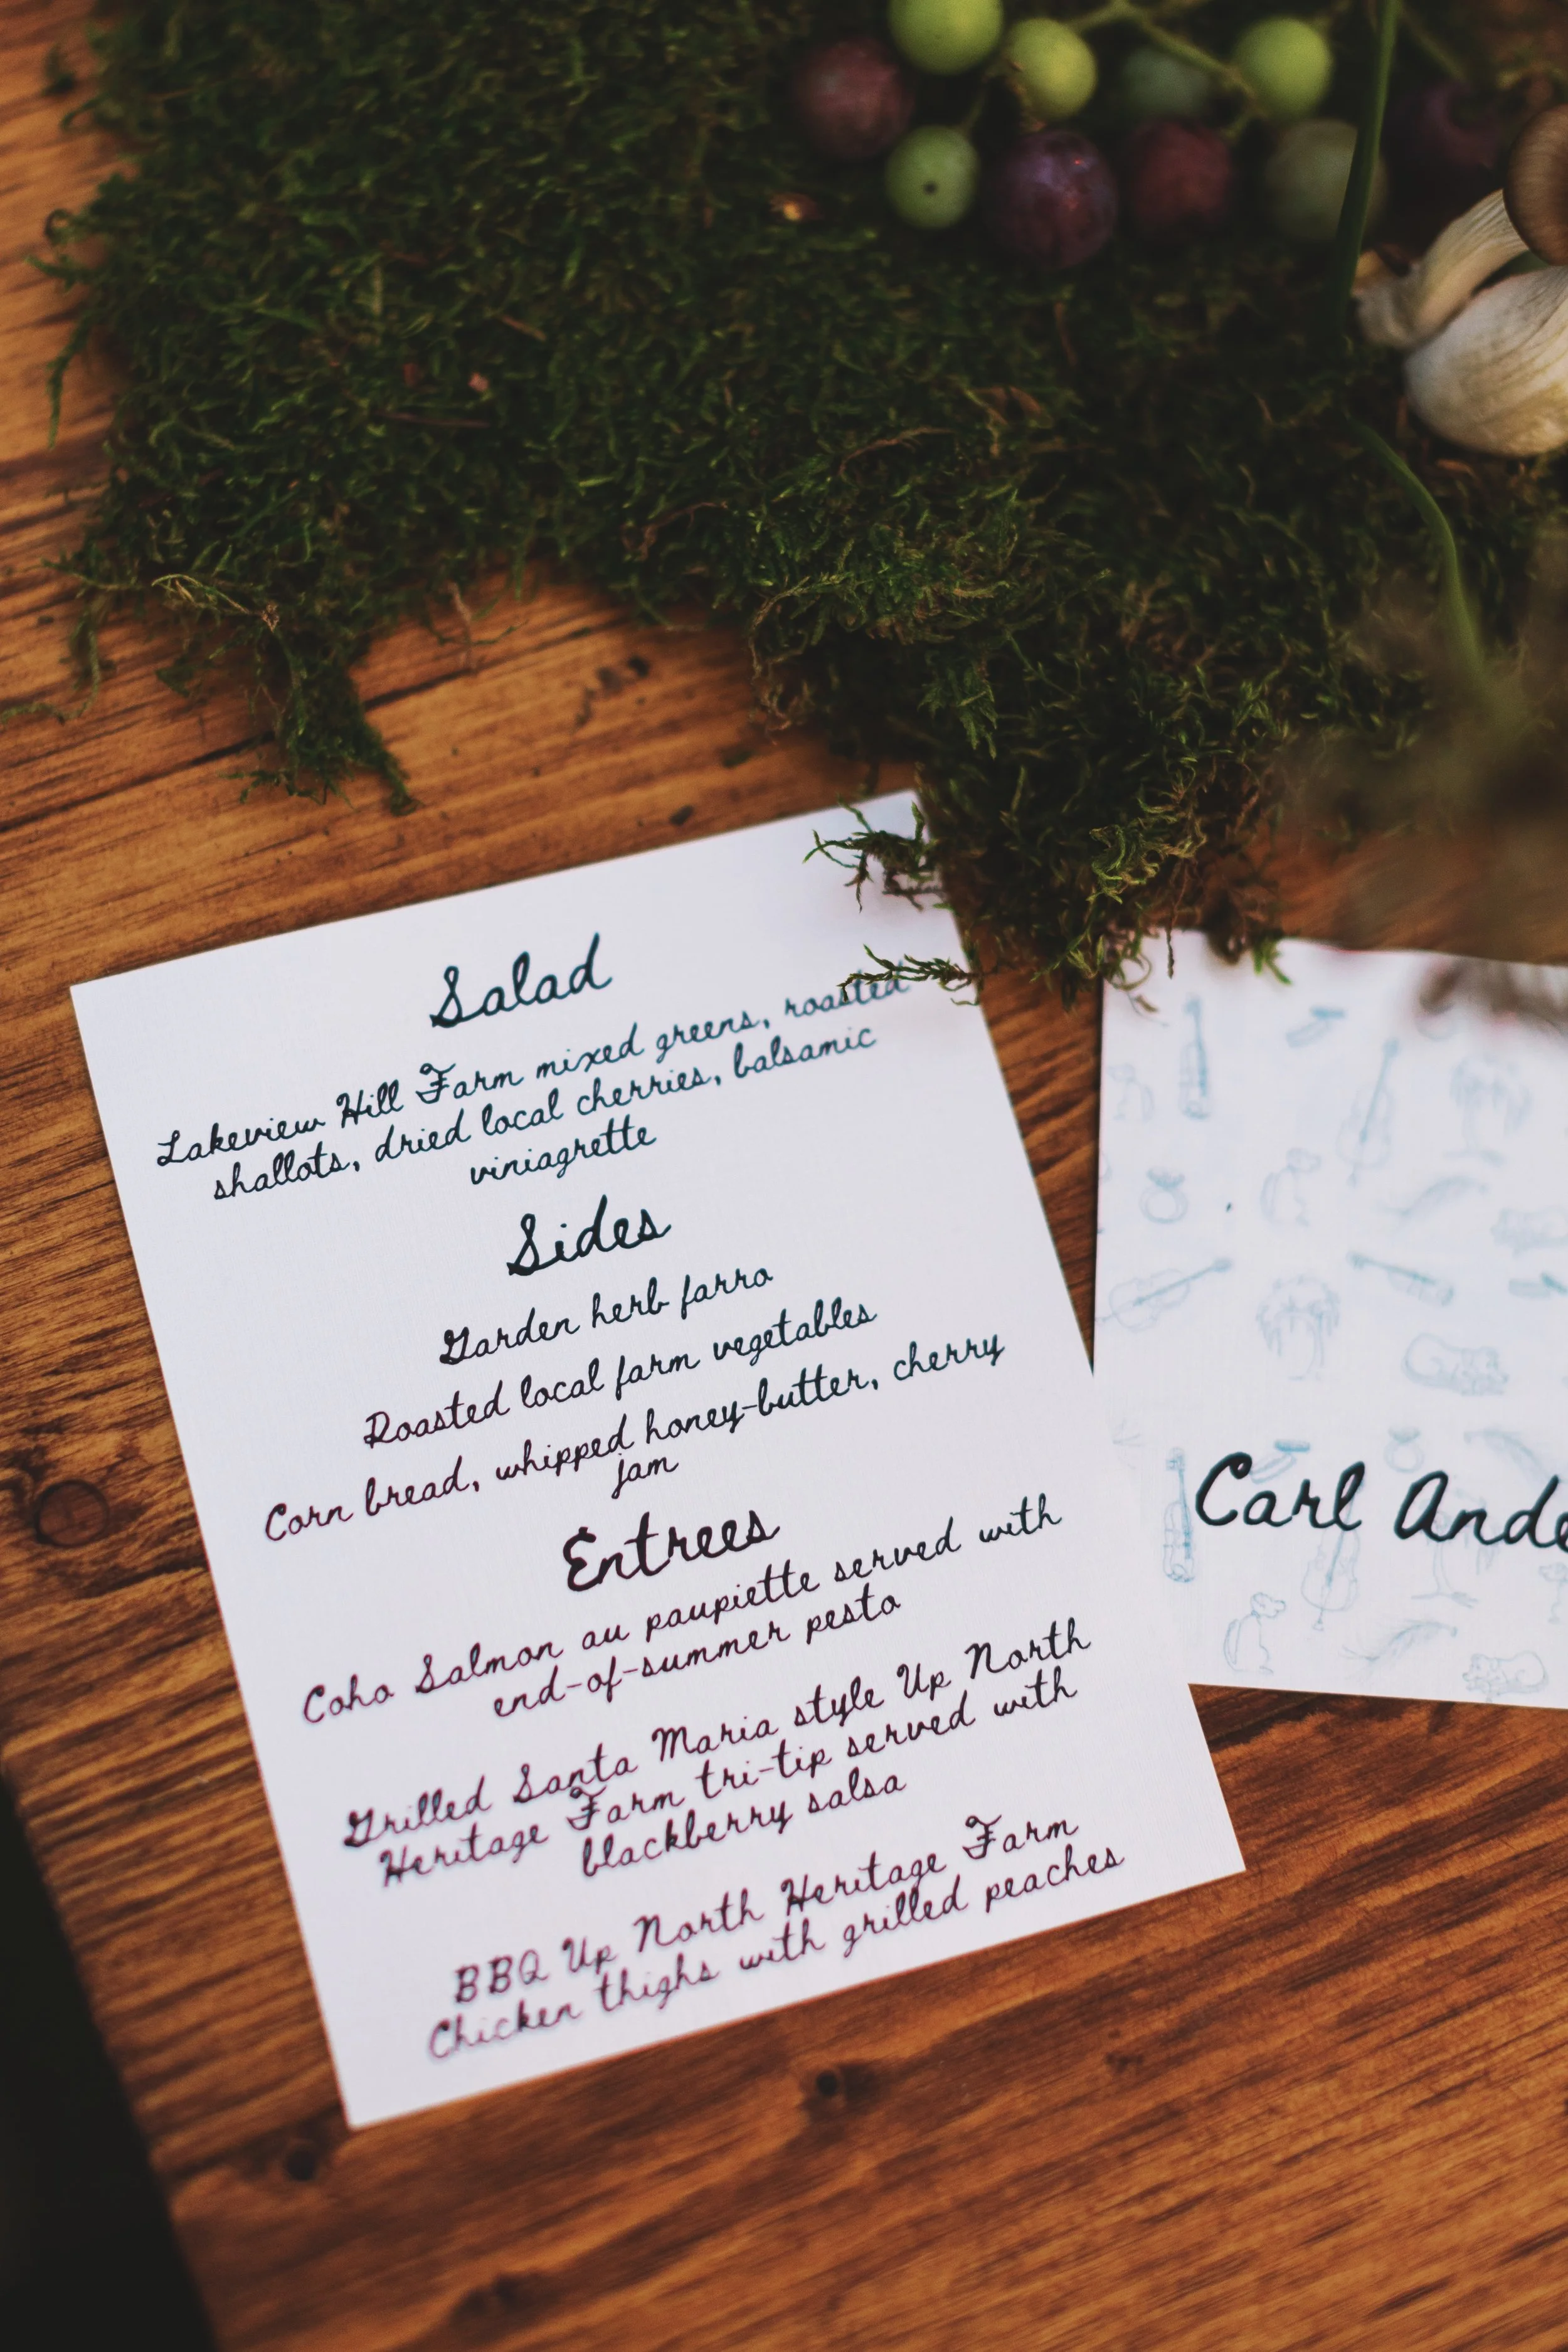 Salad
Lakeview Hill Farm mixed greens, roasted
shallots, dried local cherries, balsamic
viniagrette
Sides
Garden herb farro
Roasted local farm vegetables
Corn bread, whipped honey-butter, cherry
jam
Entrees
Coho Salmon au paupiette served with
end-of-summer pesto
Grilled Santa Maria style Up North
Heritage Farm tri-tip served with
blackberry salsa
BBQ Up North Heritage Farm
Chicken thighs with grilled peaches
Carl Ande